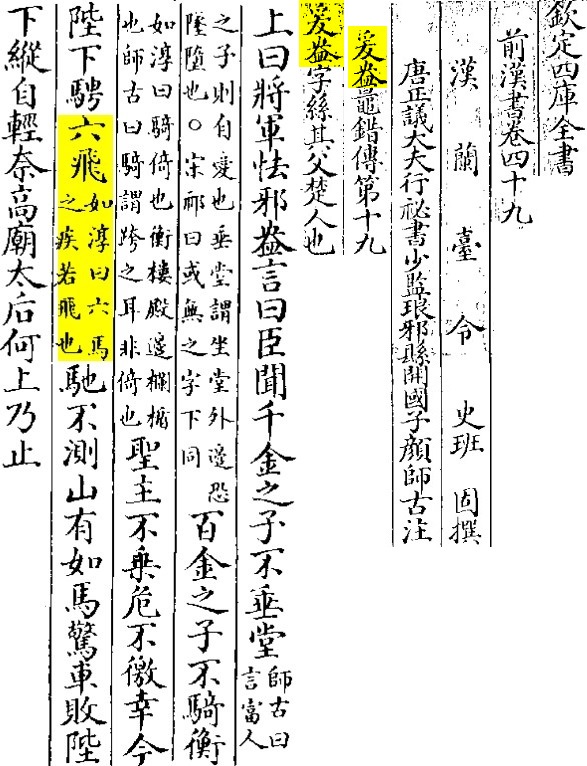 欽定四庫全書
前漢書卷四十九
漢蘭臺令史班固撰
唐正議大夫行祕書少監琅邪縣開國子顏師古注
爰盎鼂錯傳第十九
爰盎字絲其父楚人也
上曰將軍怯邪盎言曰臣聞千金之子不垂堂師古曰言富人
之子則自愛也垂堂謂坐堂外邊恐墜墮也○宋祁曰或無之字下同百金之子不騎衡
如淳曰騎倚也衡樓殿邊欄楯也師古曰騎謂跨之耳非倚也聖主不乗危不徼幸今
陛下騁六飛如淳曰六馬之疾若飛也馳不測山有如馬驚車敗陛
下縱自輕奈高廟太后何上乃止